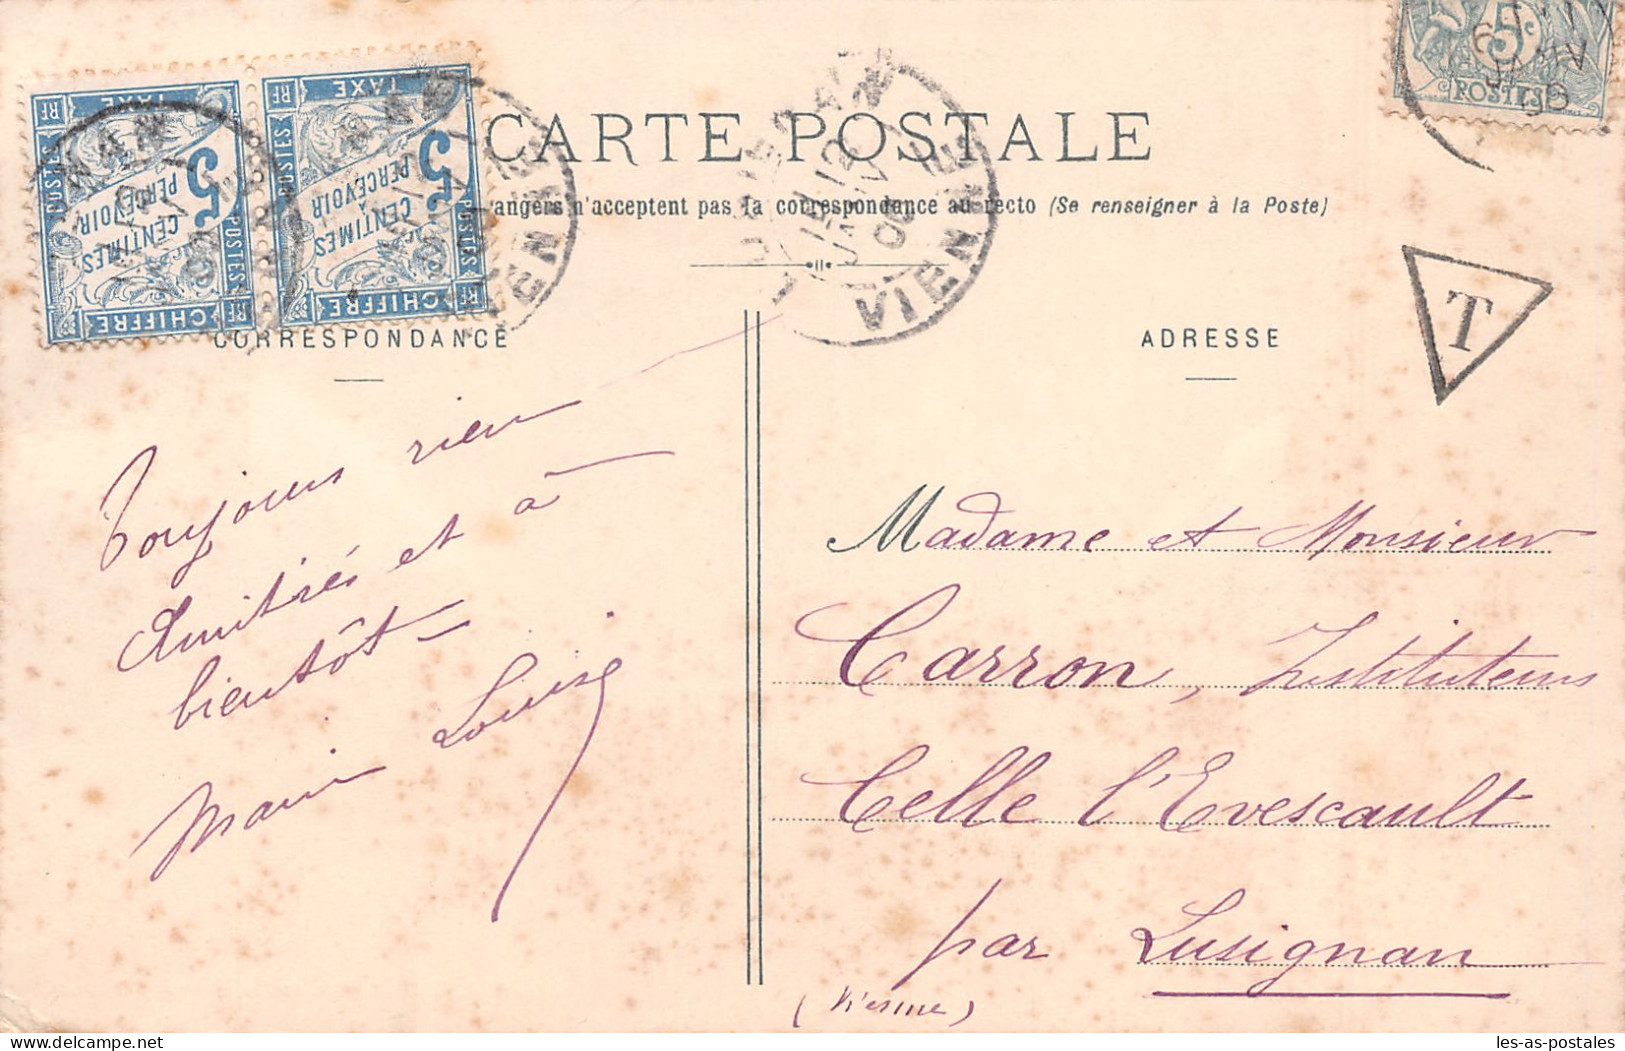 CARTE POSTALE
angers n'acceptent pas la correspondance au recto (Se renseigner à la Poste)
POSTES TAXE RF
5
CENTIMES
PERCEVOIR
CHIFFRE
POSTES
RF
POSTES TAXE RF
5
CENTIMES
PERCEVOIR
CHIFFRE
POSTES
RF
VIENNE
VIENNE
5c
POSTES
T
CORRESPONDANCE
Toujours rien
Amitiés et à
bientôt
Marie Louise
ADRESSE
Madame et Monsieur
Carron, Instituteurs
Celle l'Evescault
par Lusignan
(Vienne)
les-as-postales